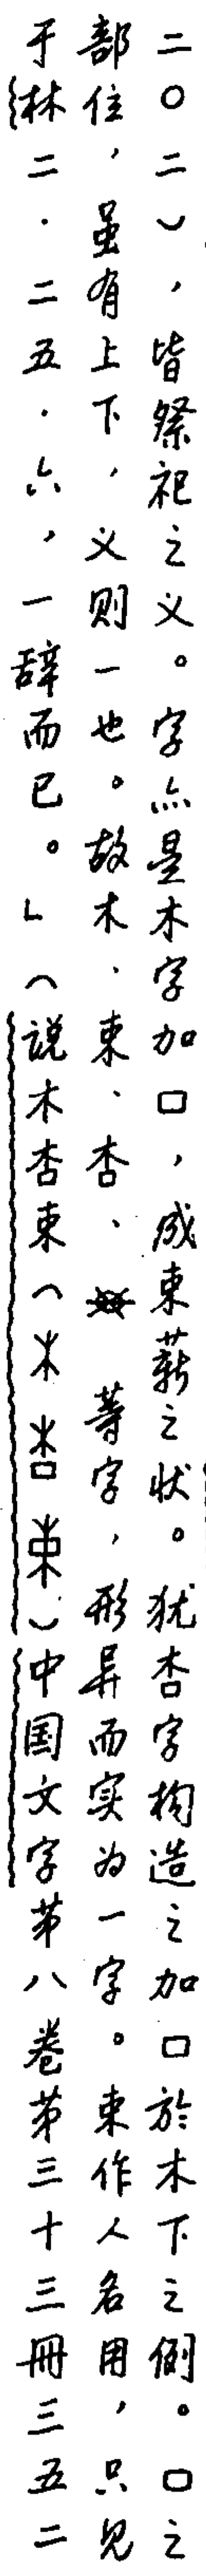 二〇二），皆祭祀之义。字亦是木字加口，成束薪之状。犹杏字构造之加口於木下之例。口之
部位，虽有上下，义则一也。故木、束、杏、等字，形异而实为一字。束作人名用，只见
于林二·二五·六，一辞而已。」（说木杏束（木杏束）中国文字第八卷第三十三冊三五二